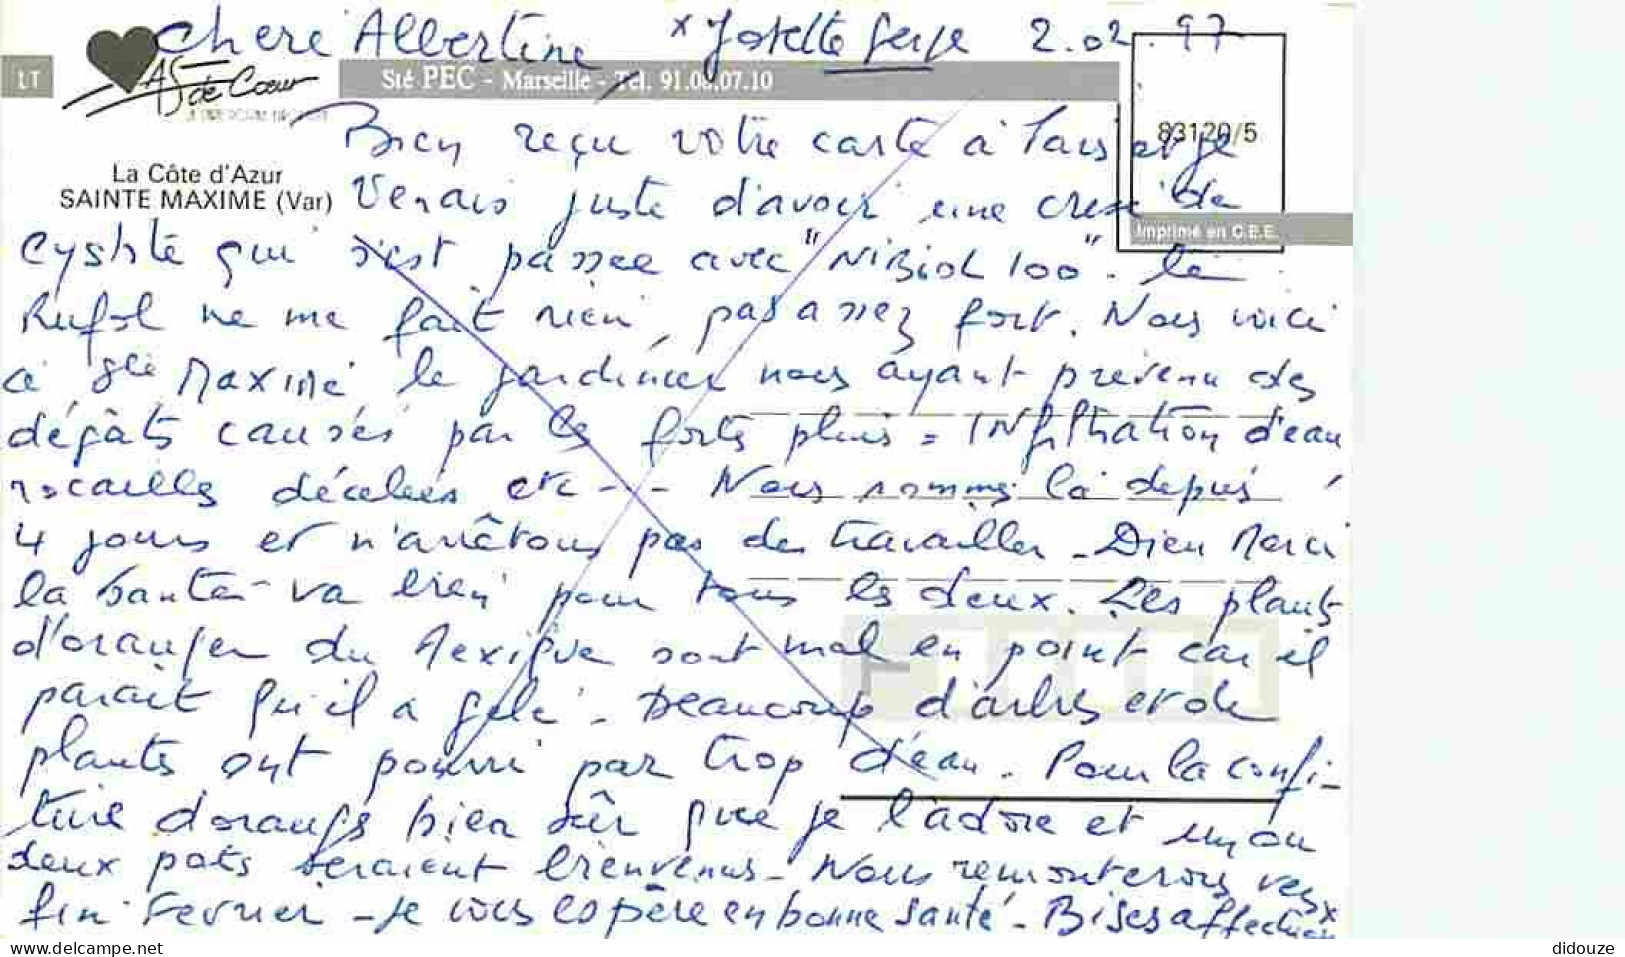 Chere Albertine x Josette Serge 2.02.97
LT
As de Coeur
Sté PEC - Marseille - Tel. 91.06.07.10
83120/5
La Côte d'Azur
SAINTE MAXIME (Var)
Imprimé en C.E.E.
Bien reçu votre carte à Paris et je
venais juste d'avoir une crise de
cystite qui s'est passée avec "NIBIOL 100". Le
Rufol ne me fait rien, pas assez fort. Nous voici
à Ste Maxime le jardinier nous ayant prévenu des
dégâts causés par les fortes pluies = INfiltration d'eau
rocailles décelées etc - - Nous sommes là depuis
4 jours et n'arrêtons pas de travailler - Dieu Merci
la santé va bien pour tous les deux. Les plants
d'oranger du Mexique sont mal en point car il
parait qu'il a gelé - Beaucoup d'arbres et de
plantes ont pourri par trop d'eau. Pour la confi-
ture d'oranges bien sûr que je l'adore et un ou
deux pots seraient bienvenus - Nous remonterons vers
fin Fevrier - Je vous espère en bonne santé - Bises affection
delcampe.net
didouze